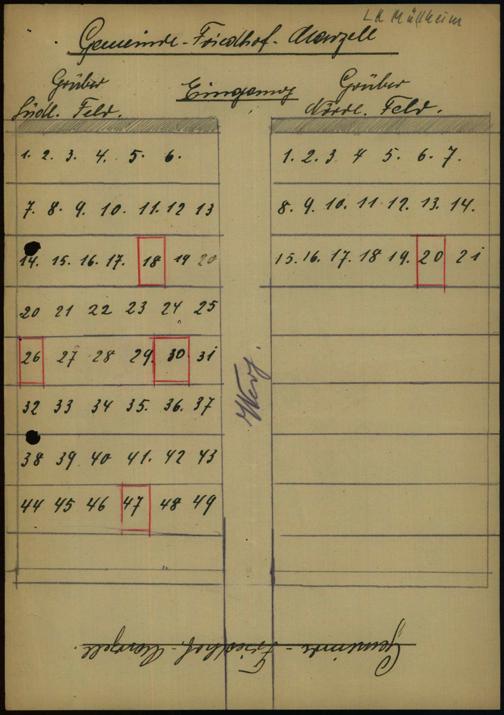 LK Müllheim
Gemeinde-Friedhof-Marzell
Gräber Eingang Gräber
Südl. Feld. Nördl. Feld.
1. 2. 3. 4. 5. 6.
1. 2. 3 4 5. 6. 7.
7. 8. 9. 10. 11. 12 13
8. 9. 10. 11. 12. 13. 14.
14. 15. 16. 17. 18 19 20
15. 16. 17. 18 19. 20 21
20 21 22 23 24 25
26 27 28 29. 30. 31
Weg.
32 33 34 35. 36. 37
38 39 40 41. 42 43
44 45 46 47 48 49
Gemeinde-Friedhof-Marzell.